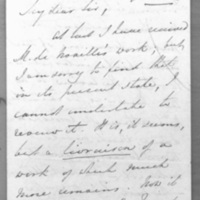 My dear Sir,
At last I have received
M. de Noailles's work; but,
I am sorry to find that
in its present state, I
cannot undertake to
review it. It is, it seems,
but a livraison of a
work of which much
more remains. Does it